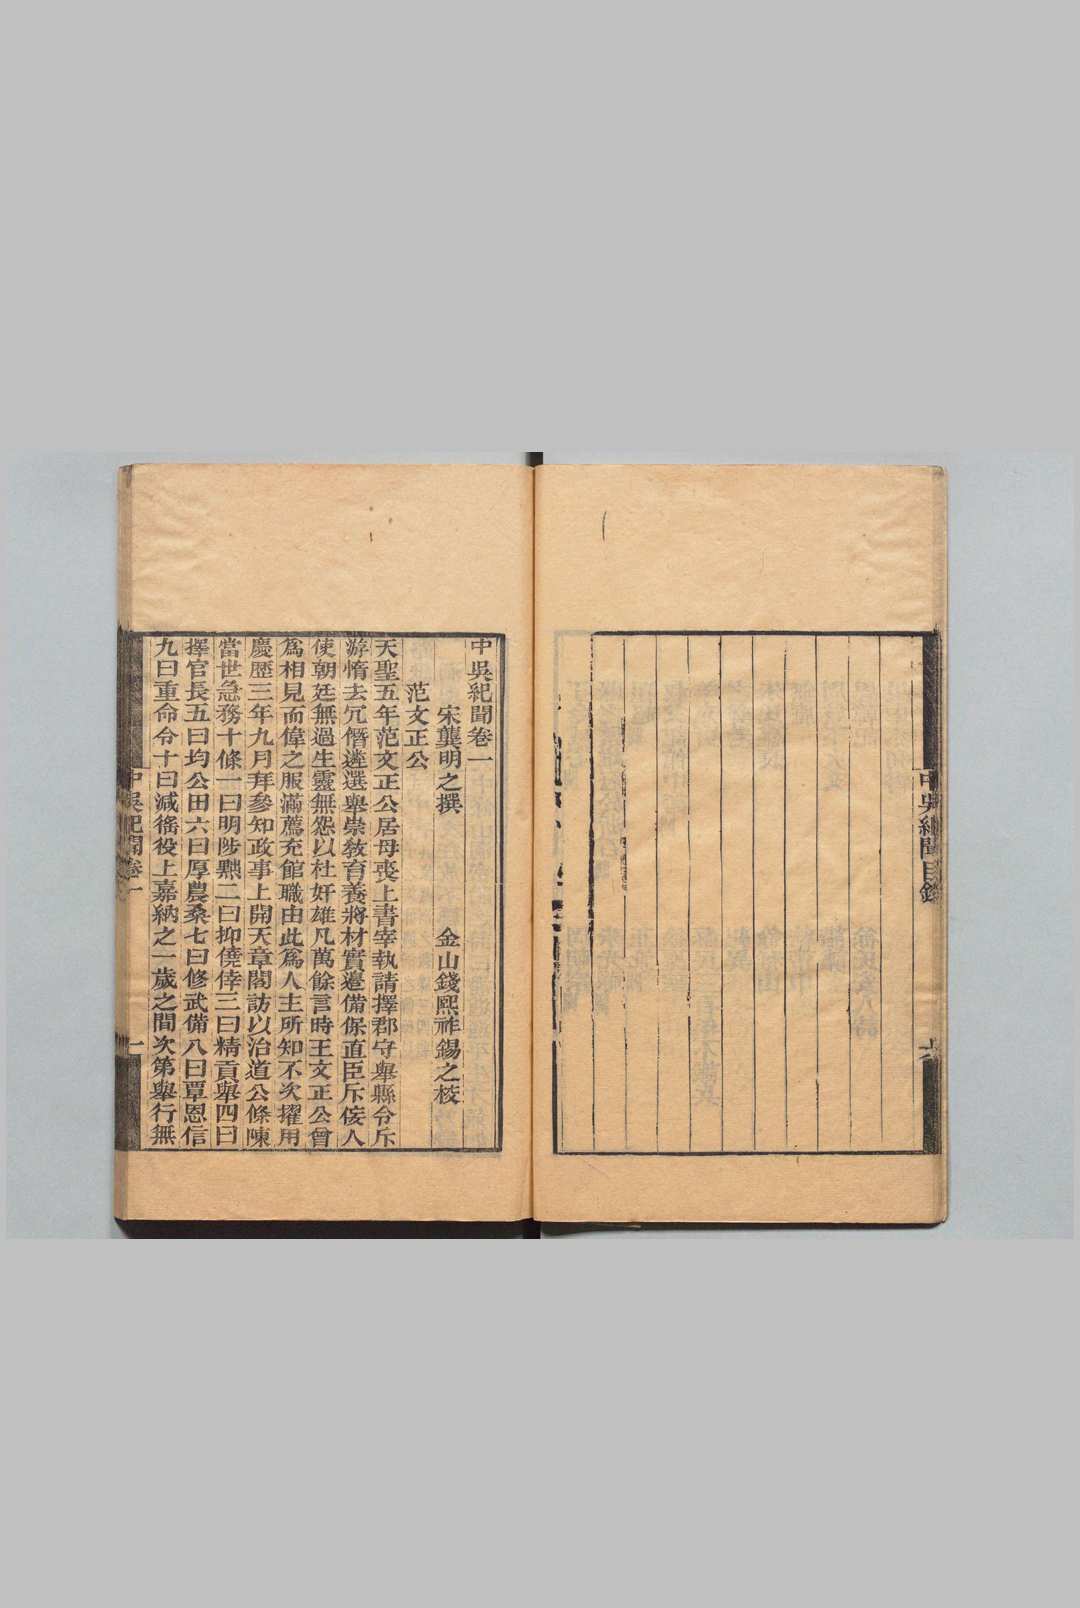 中吳紀聞目錄
六
中吳紀聞卷一
宋龔明之撰　金山錢熙祚錫之校
范文正公
天聖五年范文正公居母喪上書宰執請擇郡守舉縣令斥
游惰去冗僭遴選舉崇敎育養將材實邊備保直臣斥佞人
使朝廷無過生靈無怨以杜奸雄凡萬餘言時王文正公曾
爲相見而偉之服滿薦充館職由此爲人主所知不次擢用
慶歷三年九月拜參知政事上開天章閣訪以治道公條陳
當世急務十條一曰明陟黜二曰抑僥倖三曰精貢舉四曰
擇官長五曰均公田六曰厚農桑七曰修武備八曰覃恩信
九曰重命令十曰減徭役上嘉納之一歲之間次第舉行無
中吳紀聞卷一
一